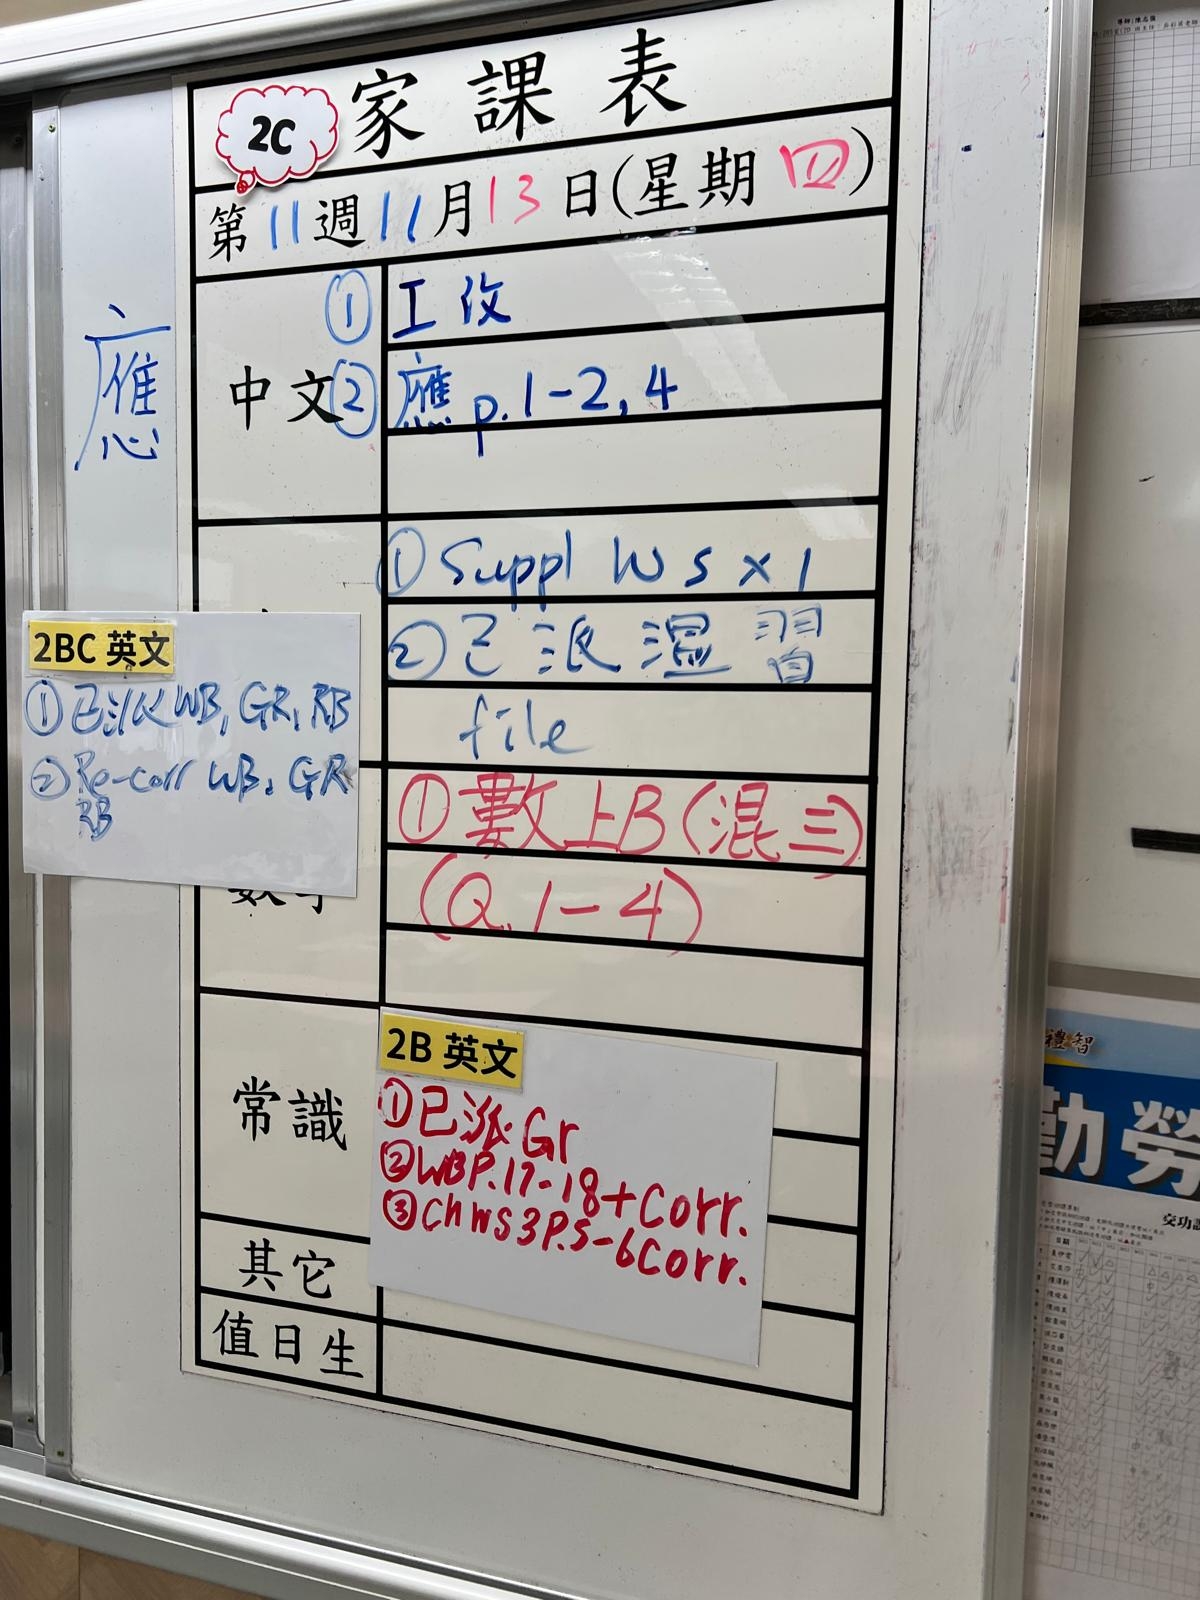 2C
家課表
第11週11月13日(星期四)
應
中文
① 工改
② 應 p.1-2, 4
① Suppl WS x 1
② 已派溫習
file
2BC 英文
① 已派 WB, GR, RB
② Re-corr WB, GR
RB
① 數上B (混三)
(Q.1-4)
常識
2B 英文
①已派 Gr
②WBP.17-18+Corr.
③Ch WS3P.5-6Corr.
其它
值日生
禮智
勤勞